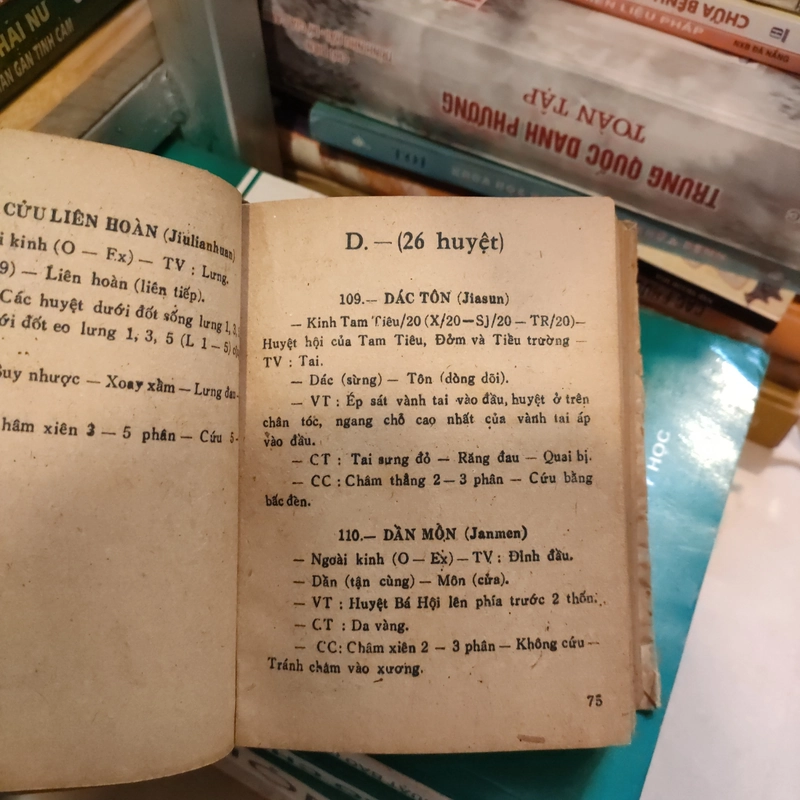 CỬU LIÊN HOÀN (Jiulianhuan)
kinh (O — Ex) — TV : Lưng.
9) — Liên hoàn (liên tiếp).
Các huyệt dưới đốt sống lưng 1, 3,
đốt eo lưng 1, 3, 5 (L 1 — 5)
nhược — Xoay xầm — Lưng đau
xiên 3 — 5 phân — Cứu 5 -
D. — (26 huyệt)
109.— DÁC TÔN (Jiasun)
— Kinh Tam Tiêu/20 (X/20—SJ/20 — TR/20)—
Huyệt hội của Tam Tiêu, Đởm và Tiều trường —
TV : Tai.
— Dác (sừng) — Tôn (dòng dõi).
— VT : Ép sát vành tai vào đầu, huyệt ở trên
chân tóc, ngang chỗ cao nhất của vành tai áp
vào đầu.
— CT : Tai sưng đỏ — Răng đau — Quai bị.
— CC : Châm thẳng 2 — 3 phân — Cứu bằng
bấc đèn.
110.— DẦN MÔN (Janmen)
— Ngoài kinh (O — Ex) — TV : Đỉnh đầu.
— Dần (tận cùng) — Môn (cửa).
— VT : Huyệt Bá Hội lên phía trước 2 thốn.
— CT : Da vàng.
— CC: Châm xiên 2 — 3 phân — Không cứu —
Tránh châm vào xương.
75
TRUNG QUỐC DANH PHƯƠNG
TOÀN TẬP
CHỮA BỆNH
LIỆU PHÁP
GÂN TÌNH CẢM
HỌC